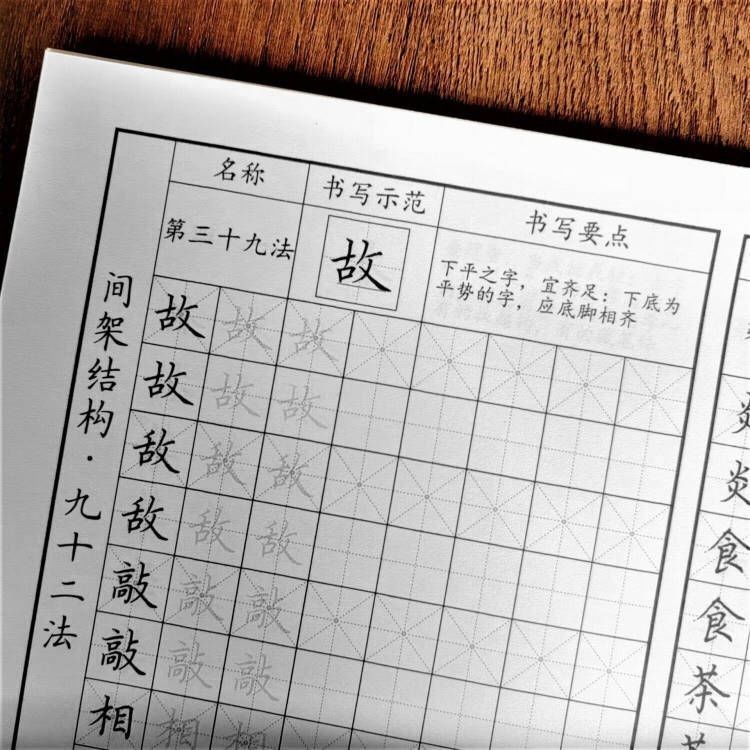 间架结构·九十二法
名称 书写示范 书写要点
第三十九法 故 下平之字，宜齐足：下底为
平势的字，应底脚相齐
故 故 故
故 故 故
敌 敌 敌
敌 敌 敌
敲 敲 敲
敲 敲 敲
相 相 相
炎
食
食
茶